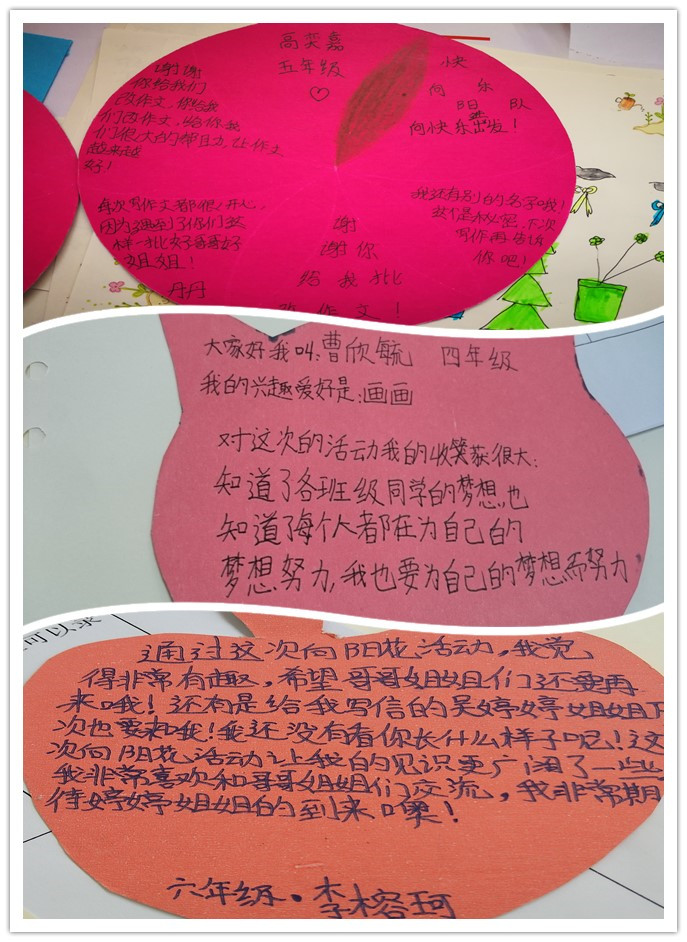 高奕嘉
五年级
谢谢
你给我们
改作文，你给我
们改作文，给你我
们很大的帮且力，让作文
越来越
好！
每次写作文都很开心，
因为遇到了你们这
样一批好哥哥好
姐姐！
丹丹
快
向 乐
阳 队
向快乐出发！
我还有别的名字哦！
这个是秘密，下次
写作再告诉
你吧！
谢
谢你
给我批
改作文！
大家好我叫：曹欣毓 四年级
我的兴趣爱好是：画画
对这次的活动我的收获很大：
知道了各班级同学的梦想，也
知道了每个人都在为自己的
梦想努力，我也要为自己的梦想而努力
可以录
通过这次向阳花活动，我觉
得非常有趣，希望哥哥姐姐们还要再
来哦！还有是给我写信的吴婷婷姐姐下
次也要来哦！我还没有看你长什么样子呢！这
次向阳花活动让我的见识更广阔了一些，
我非常喜欢和哥哥姐姐们交流，我非常期
待婷婷姐姐的到来噢！
六年级·李榕珂